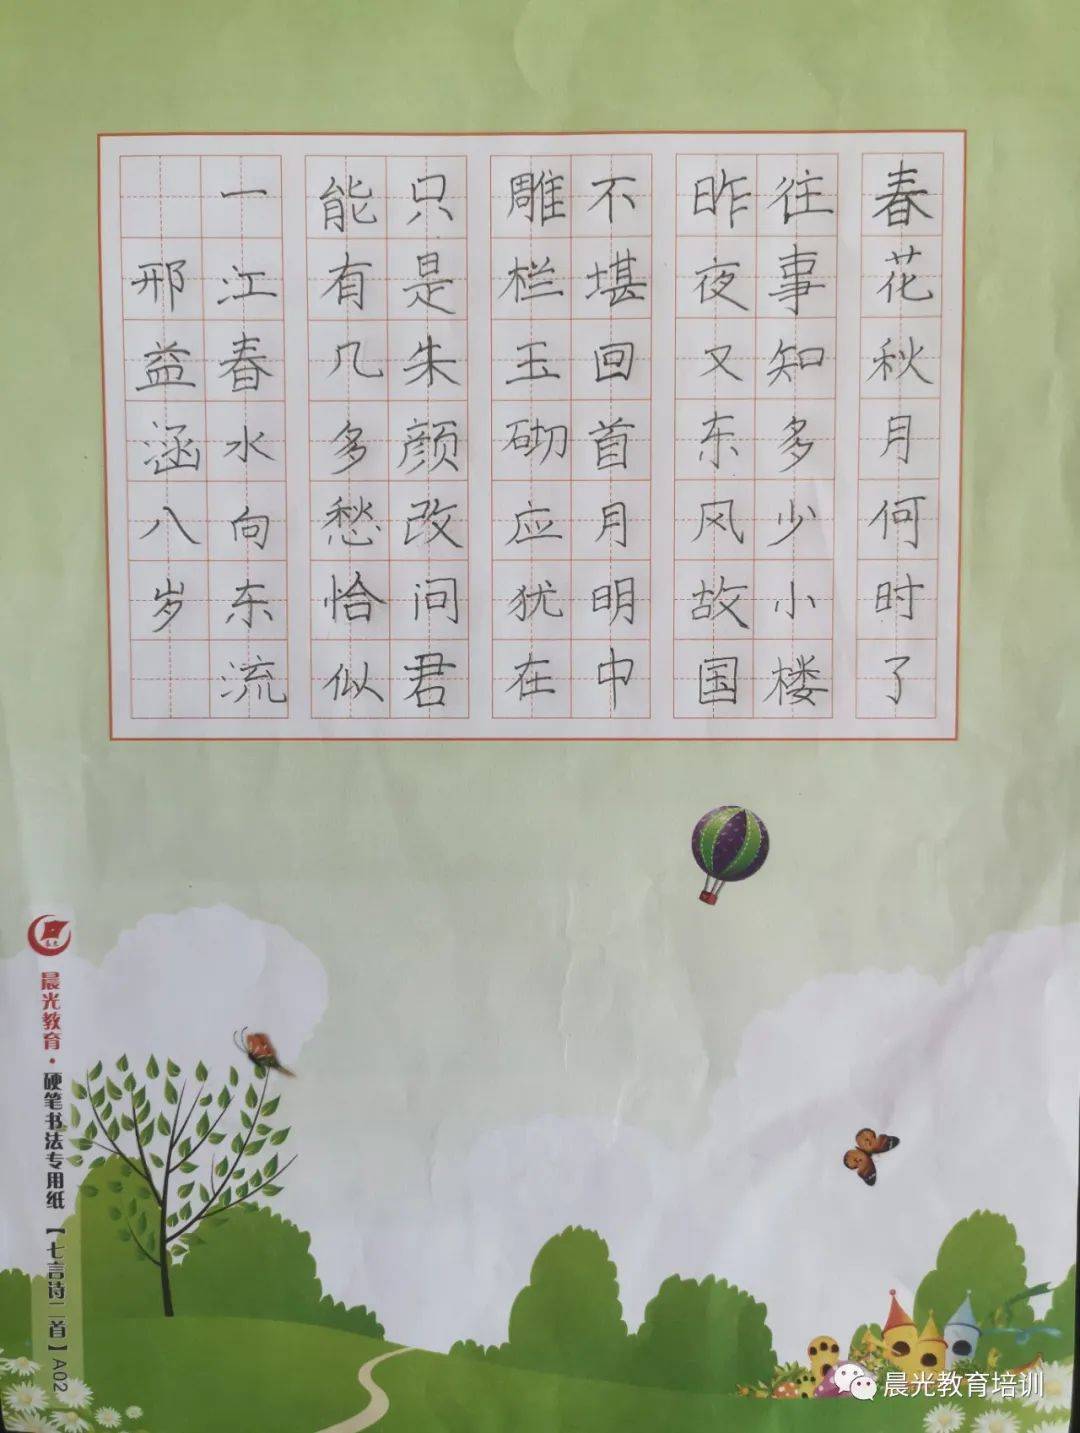 春花秋月何时了
往事知多少小楼
昨夜又东风故国
不堪回首月明中
雕栏玉砌应犹在
只是朱颜改问君
能有几多愁恰似
一江春水向东流
邢益涵八岁
晨光教育·硬笔书法专用纸【七言诗二首】A02
晨光教育培训